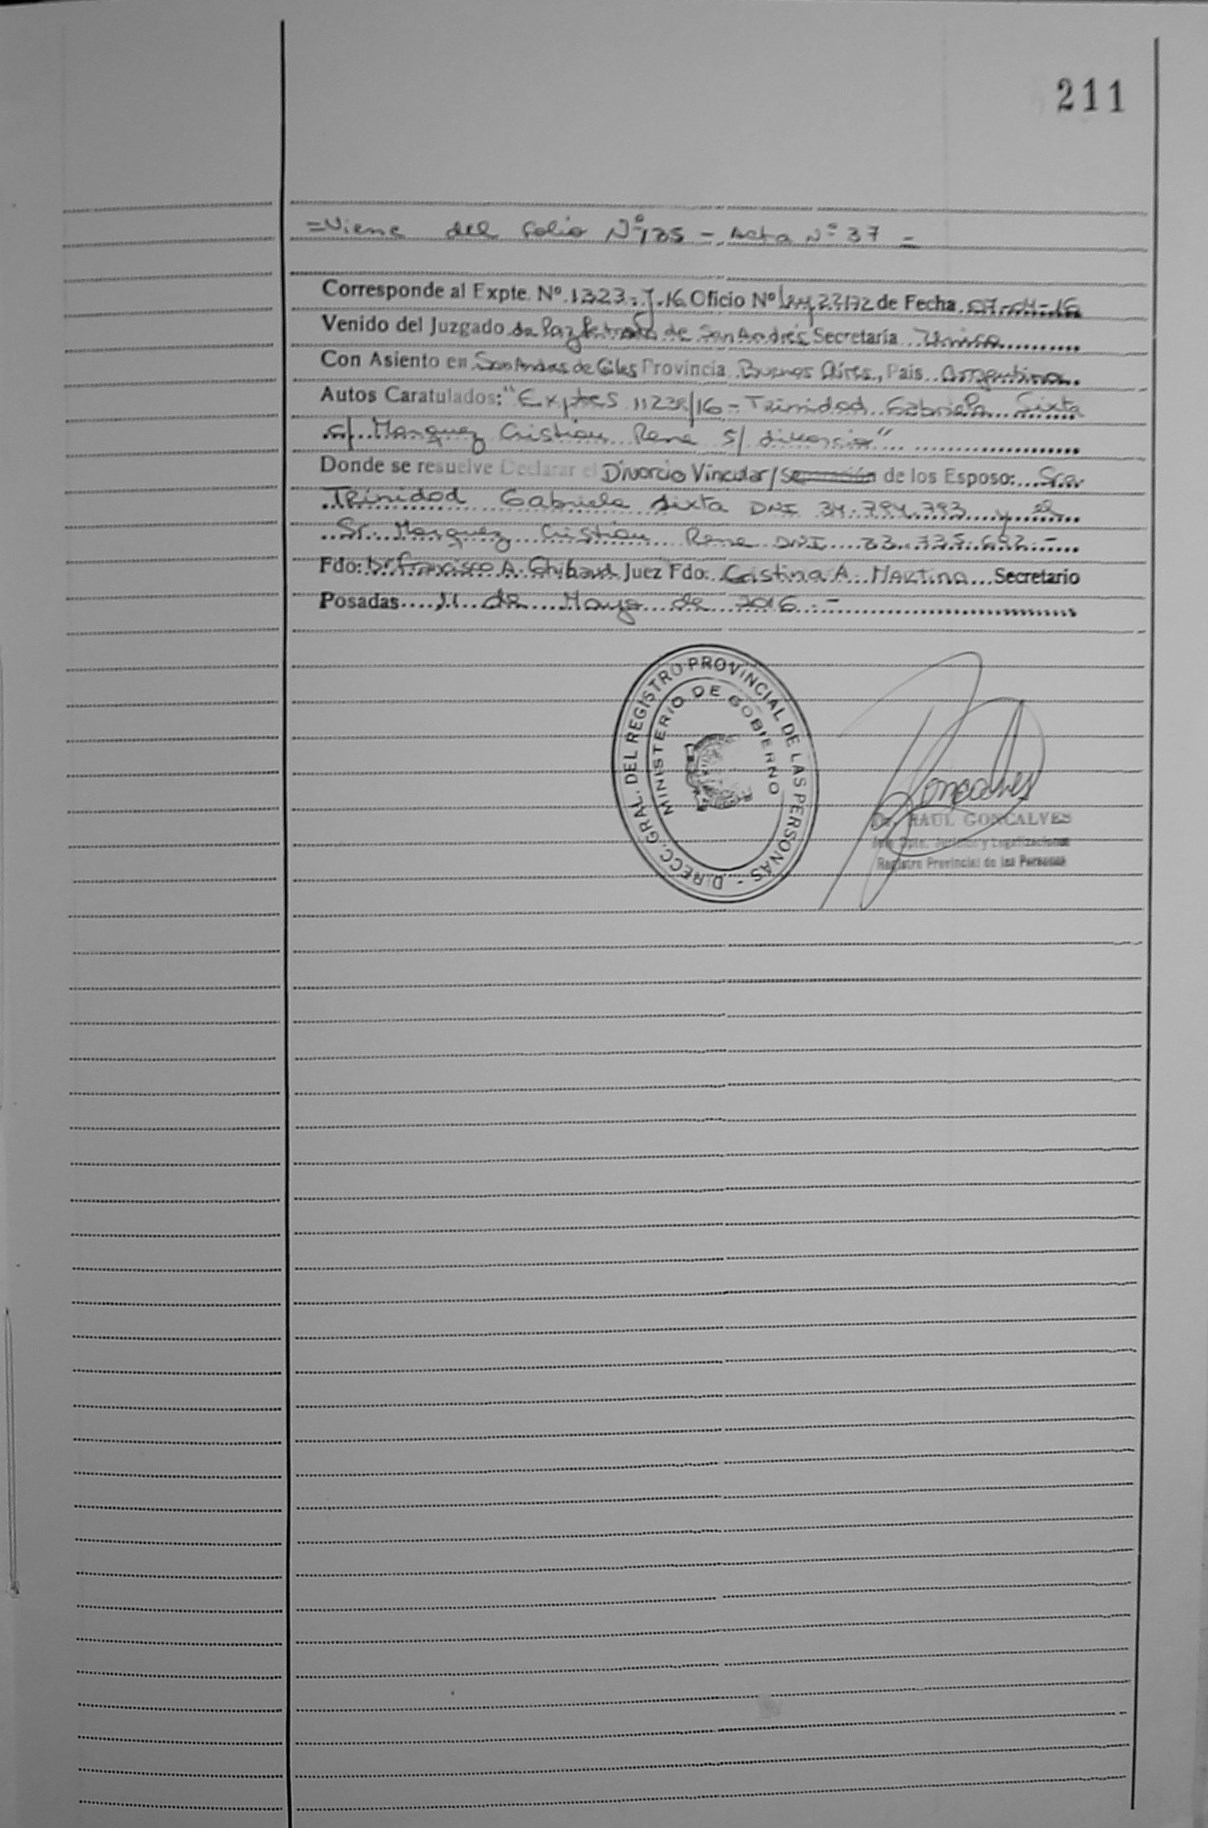 211
=Viene del folio Nº185 - Acta Nº 37 =
Corresponde al Expte. Nº.1323-J-16 Oficio Nº Ley 22172 de Fecha 07-04-16
Venido del Juzgado de Paz Letrado de San Andrés Secretaría Unica
Con Asiento en San Andres de Giles Provincia Buenos Aires, Pais Argentina.
Autos Caratulados: "Exptes 11238/16 - Trinidad Gabriela Sixta
c/ Marquez Cristian Rene s/ divorcio"
Donde se resuelve Declarar el Divorcio Vincular/Separación de los Esposo: Sra
Trinidad Gabriela Sixta DNI 34.794.793 y el
Sr. Marquez Cristian Rene DNI 23.735.692.-
Fdo: Dr Francisco A. Juez Fdo: Cristina A. Martina Secretario
Posadas 11 de Mayo de 2016.-
DIRECC. GRAL. DEL REGISTRO PROVINCIAL DE LAS PERSONAS -
MINISTERIO DE GOBIERNO
Goncalves
Dr. RAUL GONCALVES
Jefe Dpto. Jurídico y Legalizaciones
Registro Provincial de las Personas